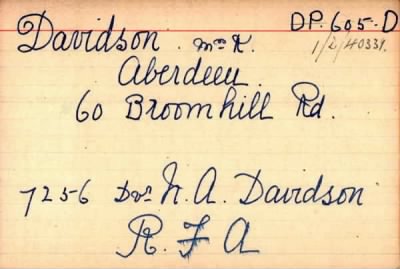 Davidson. Mrs K. DP. 605-D
1/2/40339.
Aberdeen
60 Broomhill Rd.
7256 Dvr. N. A. Davidson
R. F A